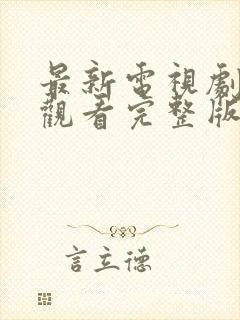 最新電視劇
觀看完整版
言立德